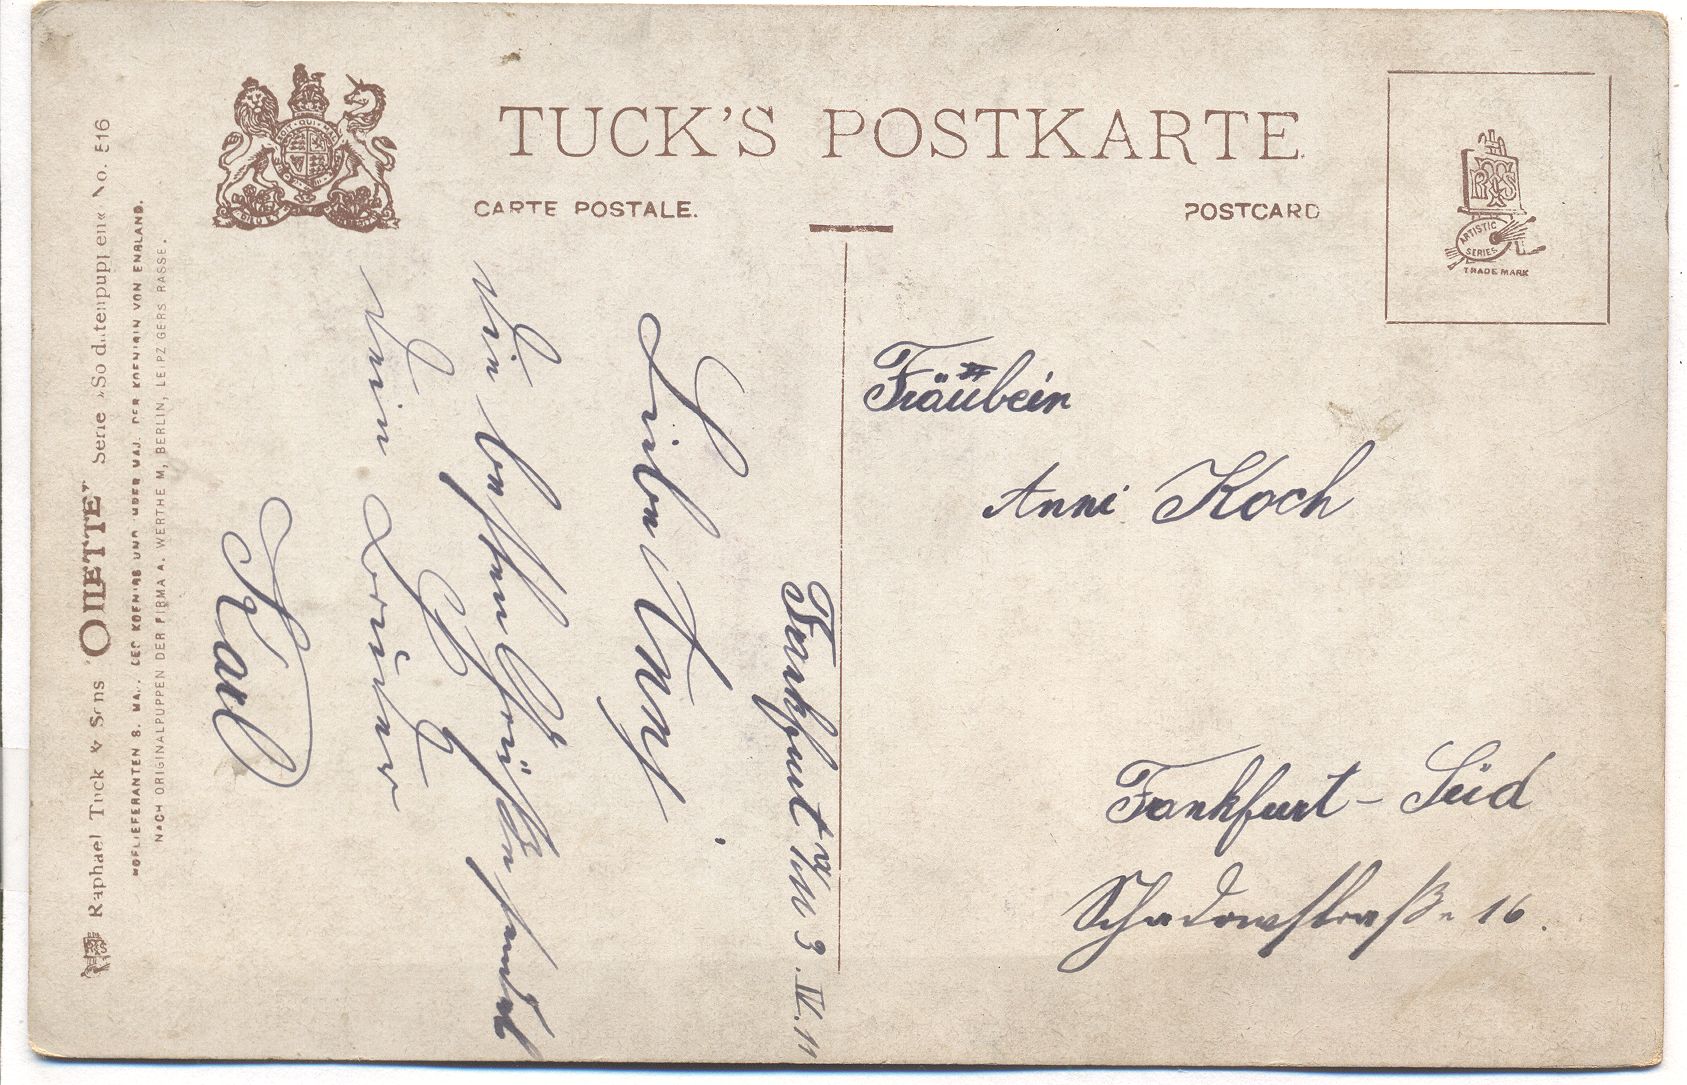 TUCK'S POSTKARTE
CARTE POSTALE.
POSTCARD
ARTISTIC
SERIES
TRADE MARK
Fräulein
Anni Koch
Frankfurt - Süd
Schadowstraße 16.
Frankfurt a/M 3. IV. 11
Liebe Anni!
Die besten Grüße sendet
Dein Bruder
Karl
Raphael Tuck & Sons "OILETTE" Serie »Soldatenpuppen« No. 516
HOFLIEFERANTEN S. MAJ. DES KOENIGS UND IHRER MAJ. DER KOENIGIN VON ENGLAND.
NACH ORIGINALPUPPEN DER FIRMA A. WERTHEIM, BERLIN, LEIPZIGERSTRASSE.